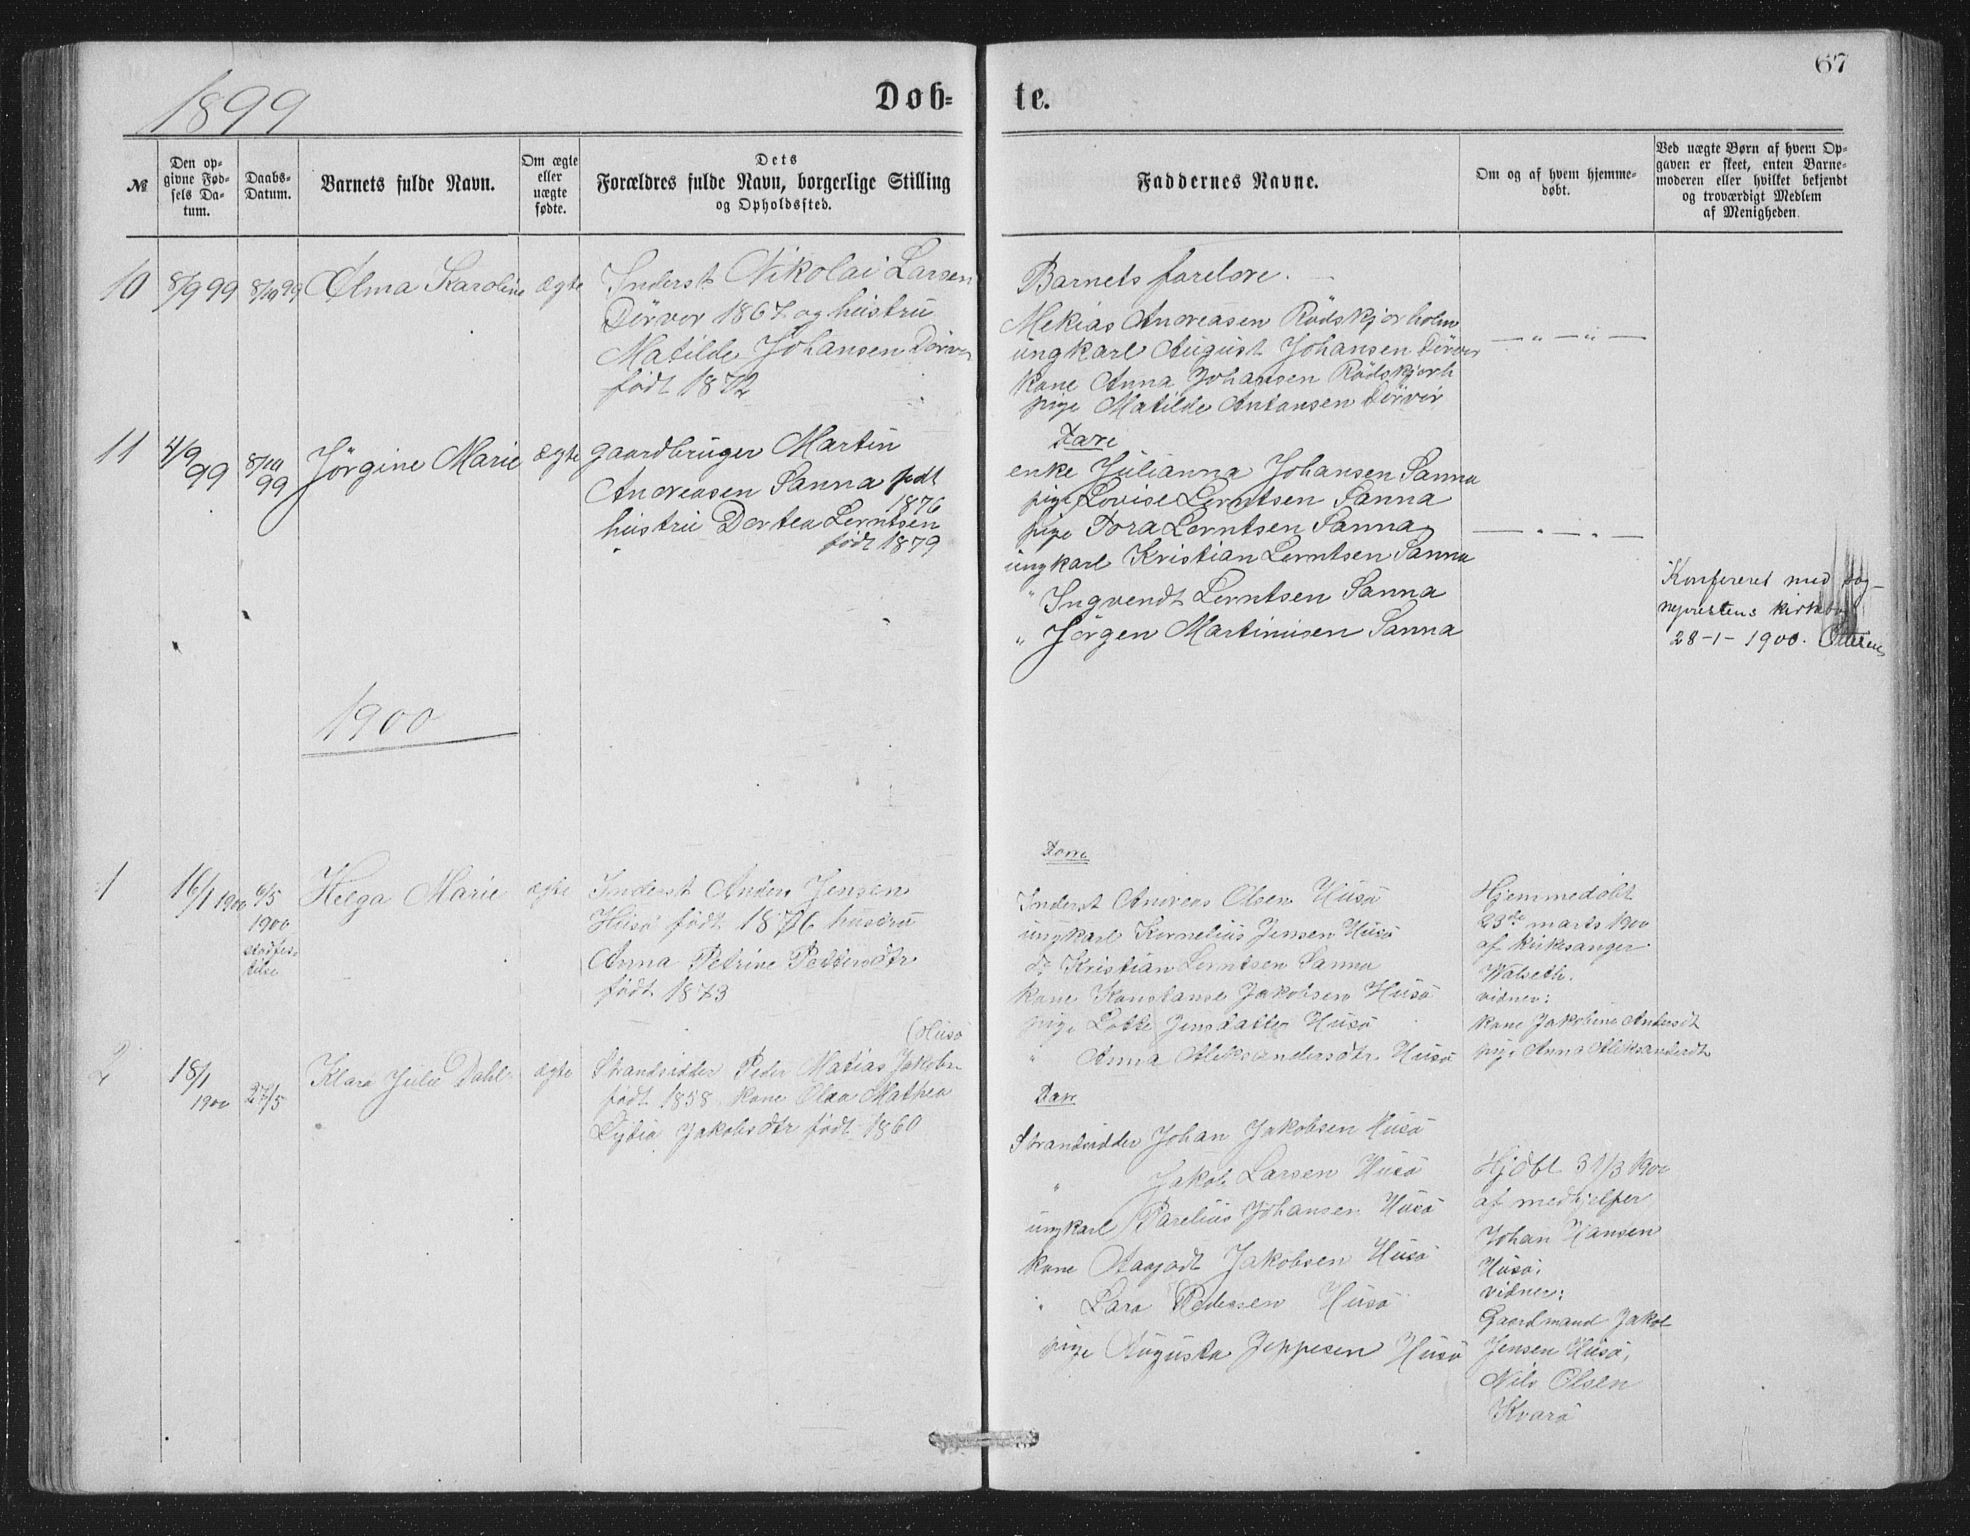 67
1899
Døb= te.
№
Den op-
givne Fød-
sels Da-
tum.
Daabs-
Datum.
Barnets fulde Navn.
Om ægte
eller
uægte
fødte.
Dets
Forældres fulde Navn, borgerlige Stilling
og Opholdssted.
Faddernes Navne.
Om og af hvem hjemme-
døbt.
Ved uægte Børn af hvem Op-
gaven er skeet, enten Barne-
moderen eller hvilket bekjendt
og troværdigt Medlem
af Menigheden.
10 8/9 99 8/10 99 Alma Karoline ægte
Inderst Nikolai Larsen
Dörvær 1867 og hustru
Matilde Johansen Dörvær
født 1872
Barnets forelore.
Mekias Andreasen Rødskjærholm
ungkarl August Johansen Dörvær
kone Anna Johansen Rødskjærh
pige Matilde Antonsen Dörvær
11 4/9 99 8/10 99 Jörgine Marie ægte
gaardbruger Martin
Andreasen Sanna født
1876
hustru Dortea Lerntsen
født 1879
Dare
enke Julianna Johansen Sanna
pige Lovise Lerntsen Sanna
pige Tora Lerntsen Sanna
ungkarl Kristian Lerntsen Sanna
" Ingvendt Lerntsen Sanna
" Jörgen Martinusen Sanna
Konfereret med sog-
neprestens kirkebog
28-1-1900.
1900
1 16/1 1900 6/5
1900
stadfes-
telse
Helga Marie ægte
Inderst Anders Jensen
Husö født 1876 hustru
Anna Petrine Pettersdtr
født 1873
Inderst Andreas Olsen Husö
ungkarl Kornelius Jensen Husö
do Kristian Lerntsen Sanna
kone Konstanse Jakobsen Husö
pige Lotte Jensdatter Husö
" Anna Aleksandersdtr Husö
Hjemmedøbt
23de marts 1900
af kirkesanger
Walseth.
vidner:
kone Jakobine Andersdt
pige Anna Aleksandersdt
2 18/1
1900 27/5
Klara Julie Dahl ægte
(Husö
Strandsidder Peder Matias Jakobsen
født 1858 kone Olea Mathea
Lydia Jakobsdtr født 1860
Dare
Strandsidder Johan Jakobsen Husö
" Jakob Larsen Husö
ungkarl Parelius Johansen Husö
kone Jakobsen Husö
" Lara Pedersen Husö
pige Augusta Jeppesen Husö
Hjdøbt 31/3 1900
af medhjelper
Johan Hansen
Husö.
vidner:
Gaardmand Jakob
Jensen Husö,
Nils Olsen
Kvarö